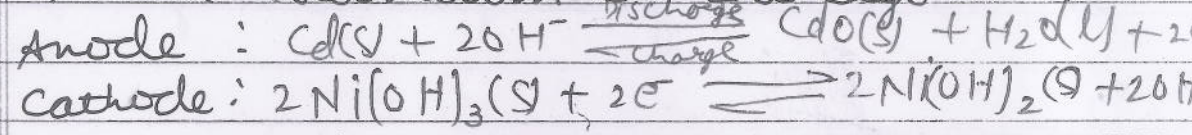 Anode : Cd(s) + 2OH⁻ ⇌ Discharge Charge CdO(s) + H₂O(l) + 2
Cathode : 2Ni(OH)₃(s) + 2e⁻ ⇌ 2Ni(OH)₂(s) + 2OH